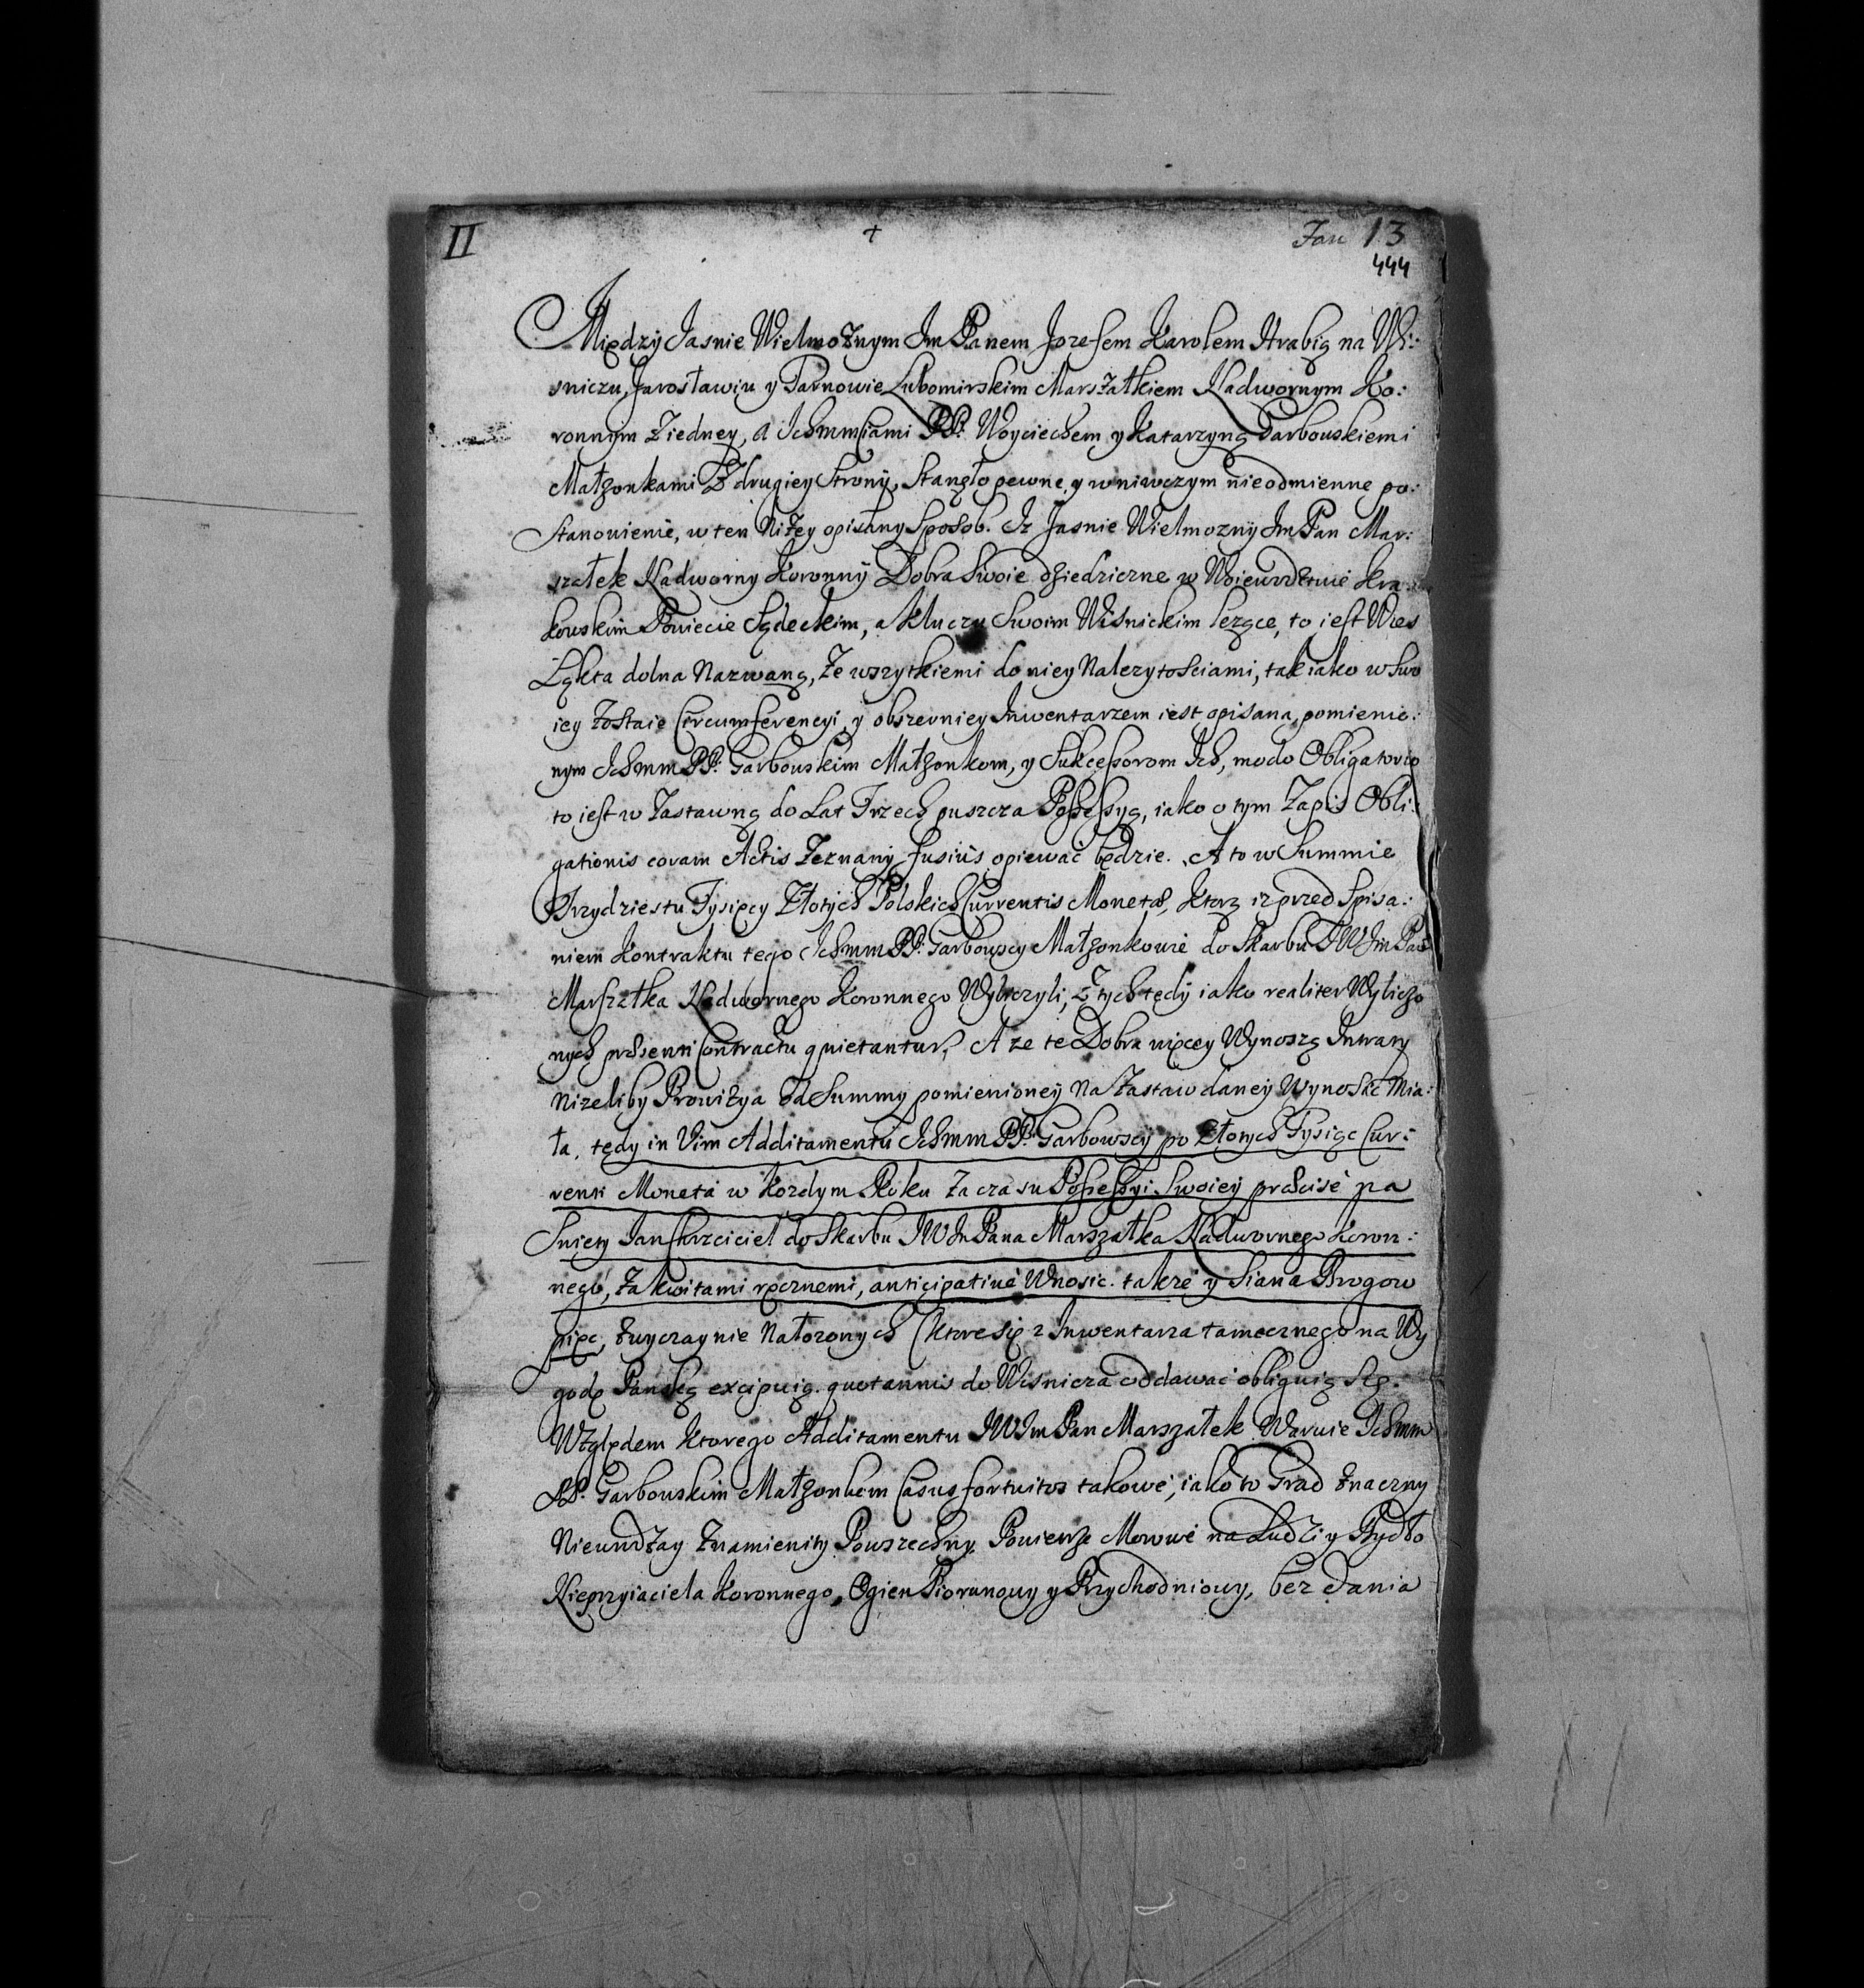 II
†
Jan 13
444
Między Jasnie Wielmożnym Jm Panem Jozefem Karolem Hrabią na Wi:
sniczu, Jarosławiu y Tarnowie Lubomirskim Marszałkiem Nadwornym Ko:
ronnym Ziedney, a Ichmmciami PP: Woyciechem y Katarzyną Garbowskiemi
Małżonkami Z drugiey Strony, Stanęło pewne y wniwczym nieodmienne po:
Stanowienie, w ten Niżey opisany Sposob. Iż Jasnie Wielmozny Jm Pan Mar:
szałek Nadworny Koronny Dobra Swoie dziedziczne w Woiewodztwie Kra:
kowskim Powiecie Sądeckim, a Kluczu Swoim Wiśnickim leżące, to iest Wies
Łąkta dolna Nazwaną, Ze wszytkiemi do niey Należytościami, tak iako w Swo
iey Zostaie Circumferencyi y obszerniey Inwentarzem iest opisana, pomienio:
nym Ichmm PP: Garbowskim Małżonkom, y Sukcessorom Ich, modo Obligatorio
to iest w Zastawną do Lat Trzech puszcza Possessyą, iako o tym Zapis Obli:
gationis coram Actis Zeznany fusius opiewać będzie. A to w Summie
Trzydziestu Tysięcy Złotych Polskich Currentis Monetæ, Ktorą iz przed Spisa:
niem Kontraktu tego Ichmm PP: Garbowscy Małżonkowie do Skarbu JW Jm Pana
Marszałka Nadwornego Koronnego Wyliczyli, Z tych tedy iako realiter Wyliczo
nych præsenti Contractu quietantur. A ze te Dobra więcey Wynoszą Intraty
Nizeliby Prowizya od Summy pomienioney Na Zastaw daney Wynosić Mia:
ła, tedy in Vim Additamentu Ichmm PP: Garbowscy po Złotych Tysiąc Cur:
renti Moneta w Kozdym Roku Za czasu Possessyi Swoiey præcise na
Swięty Jan Chrzciciel do Skarbu JW Jm Pana Marszałka Nadwornego Koron:
nego, Za kwitami rocznemi, anticipative Wnosic. takze y Siana Brogow
pięc, Zwyczaynie Nałozonych (Ktore się z Inwentarza tamecznego na Wy
godę Panską excipuią. quotannis do Wisnicza oddawać obliguią Się.
Względem Ktorego Additamentu JW Jm Pan Marszałek Waruie Ichmm
PP: Garbowskim Małżonkom Casus fortuitos takowe, iako to Grad Znaczny
Nieurodzay Znamienity Powszechny. Powietrze Morowe na Ludzi y Bydło
Nieprzyiaciela Koronnego, Ogien Piorunowy y Przychodniowy, bez dania